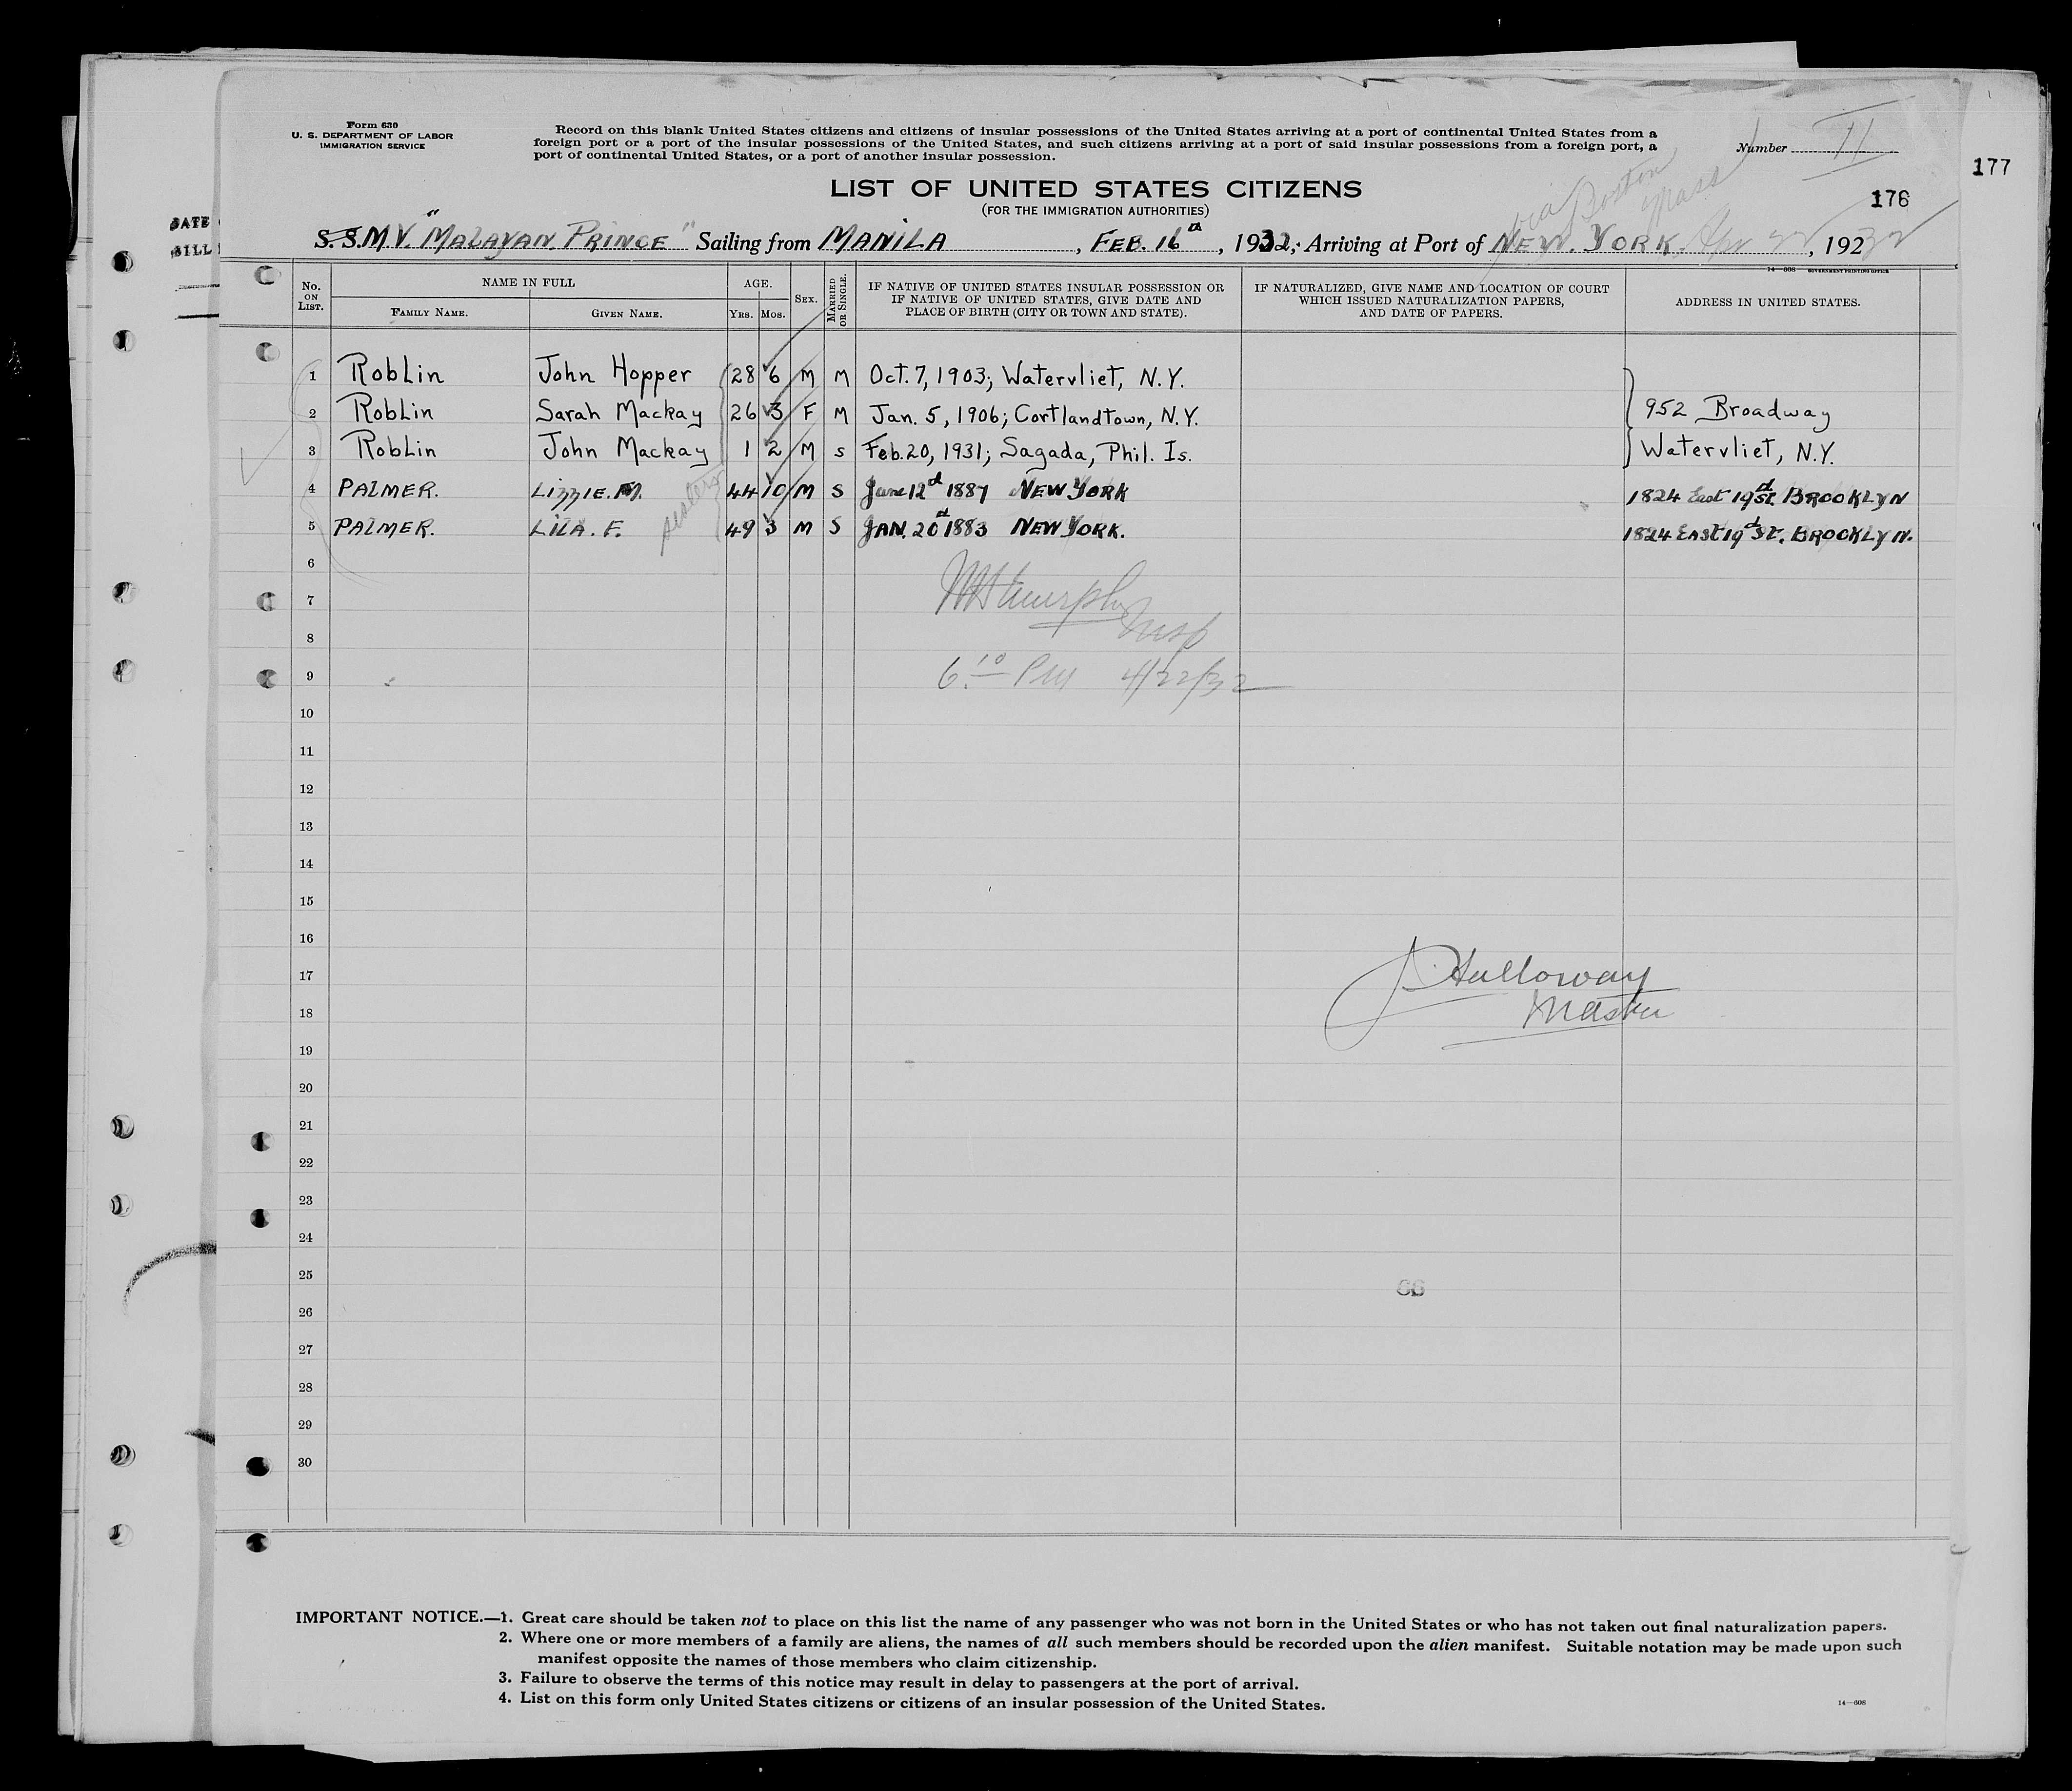 Form 630
U. S. DEPARTMENT OF LABOR
IMMIGRATION SERVICE
Record on this blank United States citizens and citizens of insular possessions of the United States arriving at a port of continental United States from a
foreign port or a port of the insular possessions of the United States, and such citizens arriving at a port of said insular possessions from a foreign port, a
port of continental United States, or a port of another insular possession.
Number 11
177
176
DATE
LIST OF UNITED STATES CITIZENS
(FOR THE IMMIGRATION AUTHORITIES)
via Boston
Mass
S.S. M.V. "MALAYAN PRINCE" Sailing from MANILA, FEB. 16th, 1932, Arriving at Port of NEW. YORK. Apr 22, 1932
14—608 GOVERNMENT PRINTING OFFICE
No. ON LIST. NAME IN FULL FAMILY NAME. GIVEN NAME. AGE. YRS. MOS. SEX. MARRIED OR SINGLE. IF NATIVE OF UNITED STATES INSULAR POSSESSION OR IF NATIVE OF UNITED STATES, GIVE DATE AND PLACE OF BIRTH (CITY OR TOWN AND STATE). IF NATURALIZED, GIVE NAME AND LOCATION OF COURT WHICH ISSUED NATURALIZATION PAPERS, AND DATE OF PAPERS. ADDRESS IN UNITED STATES.
1 Roblin John Hopper 28 6 M M Oct. 7, 1903; Watervliet, N.Y.
2 Roblin Sarah Mackay 26 3 F M Jan. 5, 1906; Cortlandtown, N.Y. 952 Broadway
3 Roblin John Mackay 1 2 M S Feb. 20, 1931; Sagada, Phil. Is. Watervliet, N.Y.
4 PALMER. LIZZIE. M. 44 10 M S June 12d 1887 NEW YORK 1824 East 19d St. BROOKLYN
5 PALMER. LILA. F. sisters 49 3 M S JAN. 20d 1883 NEW YORK. 1824 EAST 19d St. BROOKLYN.
6
7 Murphy
8 Insp
9 6.10 PM 4/22/32
10
11
12
13
14
15
16
17 J. Halloway
18 Master
19
20
21
22
23
24
25
26
27
28
29
30
IMPORTANT NOTICE.—1. Great care should be taken not to place on this list the name of any passenger who was not born in the United States or who has not taken out final naturalization papers.
2. Where one or more members of a family are aliens, the names of all such members should be recorded upon the alien manifest. Suitable notation may be made upon such
manifest opposite the names of those members who claim citizenship.
3. Failure to observe the terms of this notice may result in delay to passengers at the port of arrival.
4. List on this form only United States citizens or citizens of an insular possession of the United States.
14—608